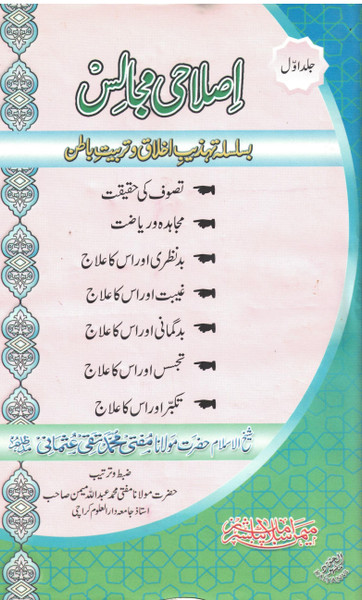 جلد اوّل
اصلاحی مجالس
بسلسلہ تہذیبِ اخلاق و تربیتِ باطن
تصوف کی حقیقت
مجاہدہ و ریاضت
بدنظری اور اس کا علاج
غیبت اور اس کا علاج
بدگمانی اور اس کا علاج
تجسس اور اس کا علاج
تکبّر اور اس کا علاج
شیخ الاسلام حضرت مولانا مفتی محمد تقی عثمانی
ضبط و ترتیب
حضرت مولانا مفتی محمد عبداللہ میمن صاحب
استاذ جامعہ دارالعلوم کراچی
میمن اسلامک پبلشرز